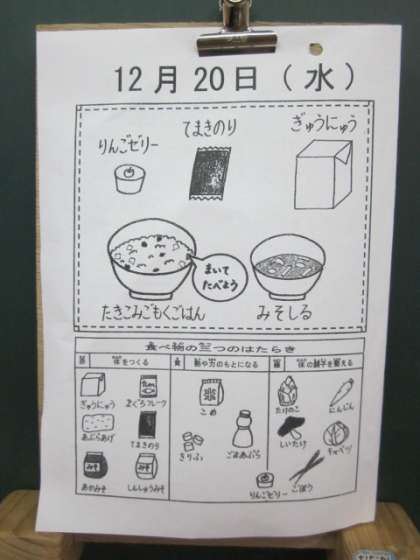 12月20日（水）
りんごゼリー
てまきのり
ぎゅうにゅう
まいて
たべよう
たきこみごもくごはん
みそしる
食べ物の三つのはたらき
体をつくる
熱や力のもとになる
体の調子を整える
ぎゅうにゅう
まぐろフレーク
あぶらあげ
てまきのり
みそ
あかみそ
みそ
しんしゅうみそ
こめ
きりふ
ごまあぶら
りんごゼリー
たけのこ
にんじん
しいたけ
キャベツ
ごぼう